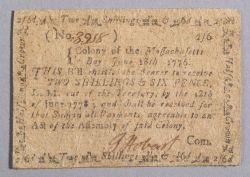 2/6d. Two Shillings & 6d. 2/6d
(No. 3918) 2/6
Colony of the Massachusetts
Bay June 18th 1776.
THIS Bill the Bearer to receive
TWO SHILLINGS & SIX PENCE,
L. M. out of the Treasury, by the 18th
of June, 1778; and shall be received for
that Sum in all Payments, agreeable to an
Act of the Assembly of said Colony.
Com.
Two Shillings & 6d.